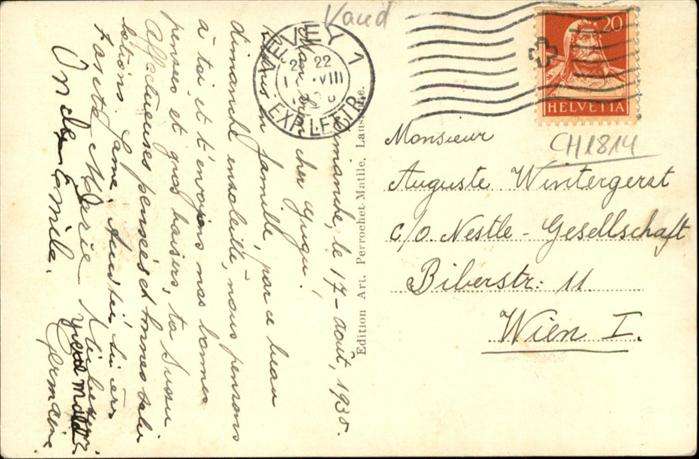 Vaud
VEVEY 1
22
VIII
EXP. LETTR.
20
HELVETIA
CH1814
Monsieur
Auguste Wintergerst
c/o. Nestle-Gesellschaft
Biberstr. 11.
Wien I.
Edition Art. Perrochet-Matile, Lausanne.
Dimanche, le 17-août, 1930.
Mon bien cher Gugu!
Réunis en famille, par ce beau
dimanche ensoleillé, nous pensons
à toi et t'envoyons nos bonnes
pensées et gros baisers, ta
Affectueuses pensées et bonnes salu
tations.
Tante Marie
Oncle Emile.
Germaine.